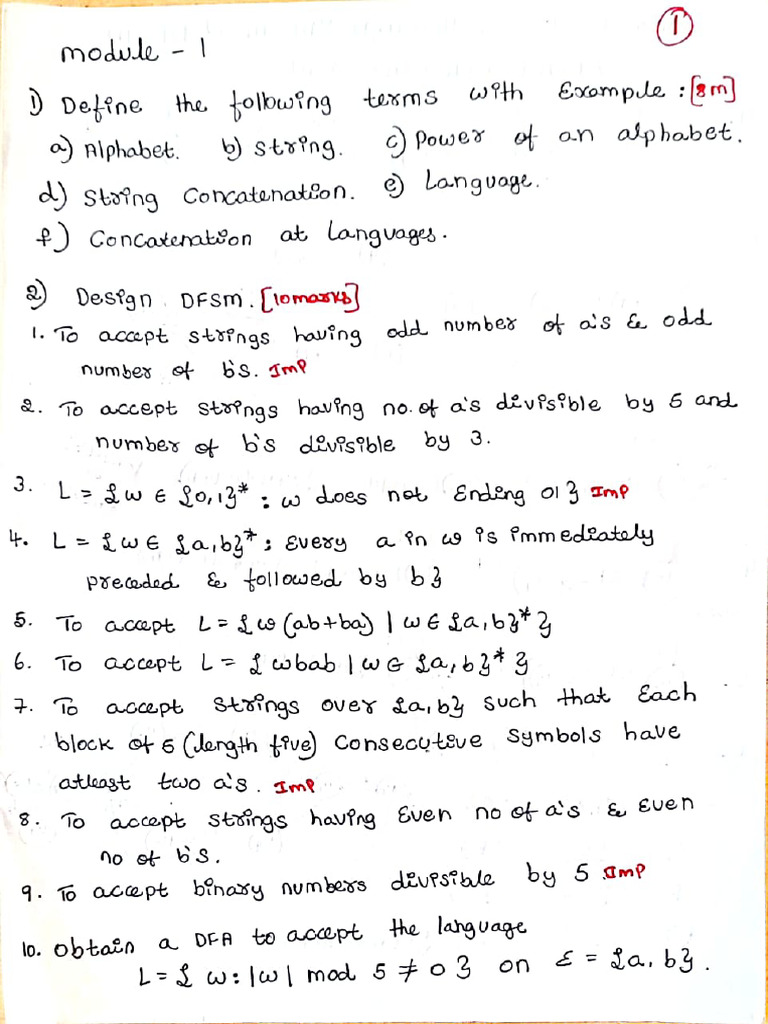 1
module - 1
1) Define the following terms with Example : [8m]
a) Alphabet. b) string. c) Power of an alphabet.
d) String Concatenation. e) Language.
f) Concatenation at Languages.
2) Design DFSM. [10marks]
1. To accept strings having odd number of a's & odd
number of b's. Imp
2. To accept strings having no. of a's divisible by 5 and
number of b's divisible by 3.
3. L = {w ∈ {0,1}* : w does not Ending 01} Imp
4. L = {w ∈ {a,b}* ; Every a in w is immediately
preceded & followed by b}
5. To accept L = {w (ab+ba) | w ∈ {a,b}* }
6. To accept L = {wbab | w ∈ {a,b}* }
7. To accept strings over {a,b} such that Each
block of 5 (length five) Consecutive symbols have
atleast two a's. Imp
8. To accept strings having Even no of a's & Even
no of b's.
9. To accept binary numbers divisible by 5 Imp
10. obtain a DFA to accept the language
L = { w : |w| mod 5 ≠ 0 } on Σ = {a,b}.